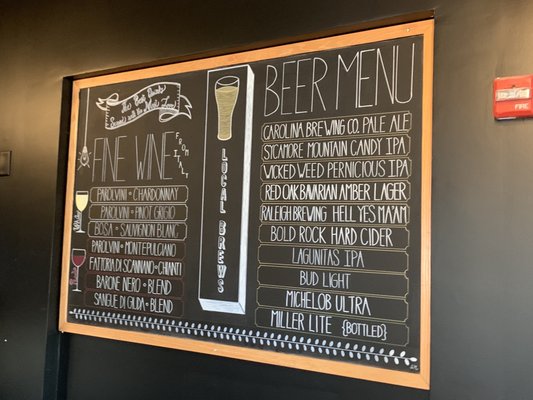 The Best Beauty
Served with the
FINE WINE
FROM ITALY
White
PAROLVINI - CHARDONNAY
PAROLVINI - PINOT GRIGIO
BOSA - SAUVIGNON BLANC
PAROLVINI - MONTEPULCIANO
FATTORIA DI SCANNANO - CHIANTI
BARONE NERO - BLEND
SANGUE DI GIUDA - BLEND
LOCAL BREWS
BEER MENU
CAROLINA BREWING CO. PALE ALE
SYCAMORE MOUNTAIN CANDY IPA
WICKED WEED PERNICIOUS IPA
RED OAK BAVARIAN AMBER LAGER
RALEIGH BREWING HELL YES MA'AM
BOLD ROCK HARD CIDER
LAGUNITAS IPA
BUD LIGHT
MICHELOB ULTRA
MILLER LITE {BOTTLED}
FIRE